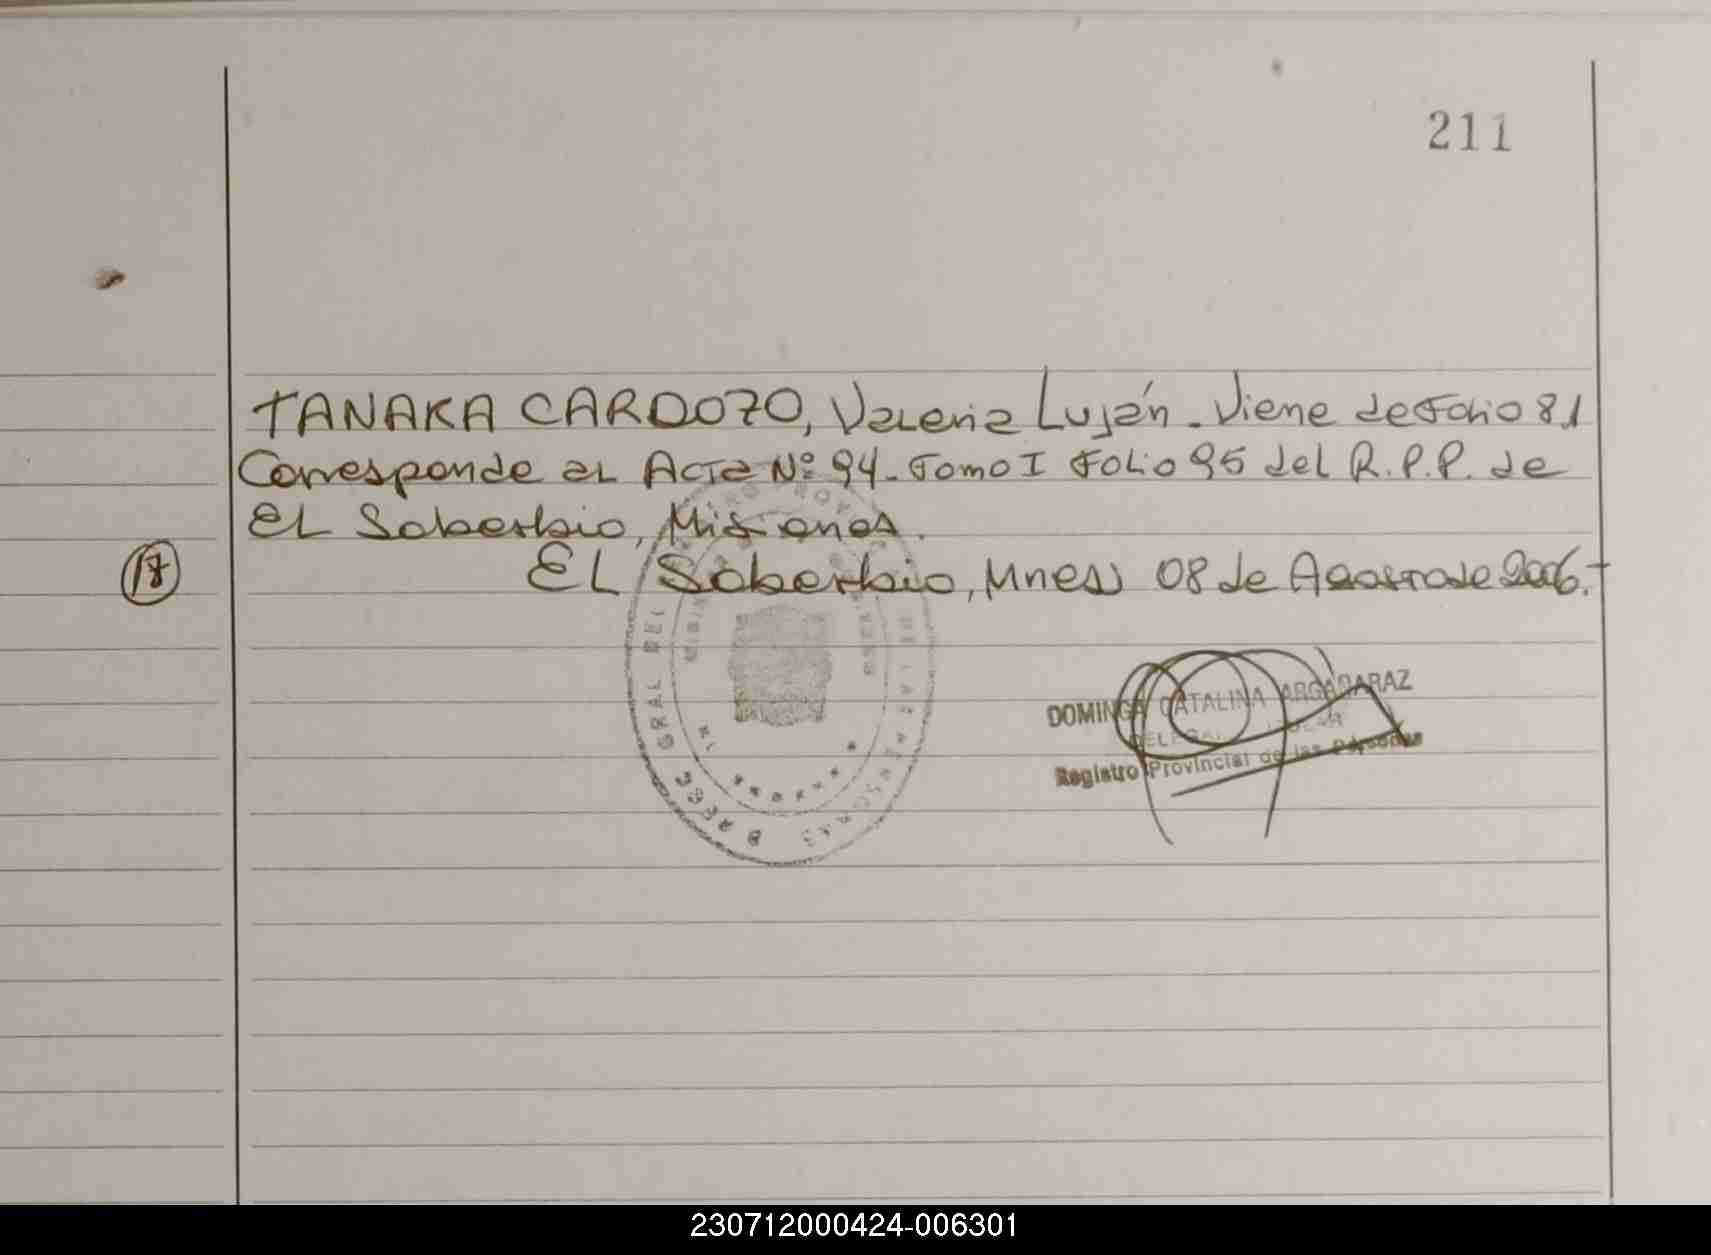 211
TANAKA CARDOZO, Valeria Luján - Viene de Folio 81
Corresponde al Acta Nº 94 - Tomo I Folio 95 del R.P.P. de
El Soberbio, Misiones.
17
El Soberbio, Mnes 08 de Agosto de 2006.-
DOMINGA CATALINA ARGAÑARAZ
Registro Provincial de las Personas
GRAL DEL
DE LAS PERSONAS
230712000424-006301